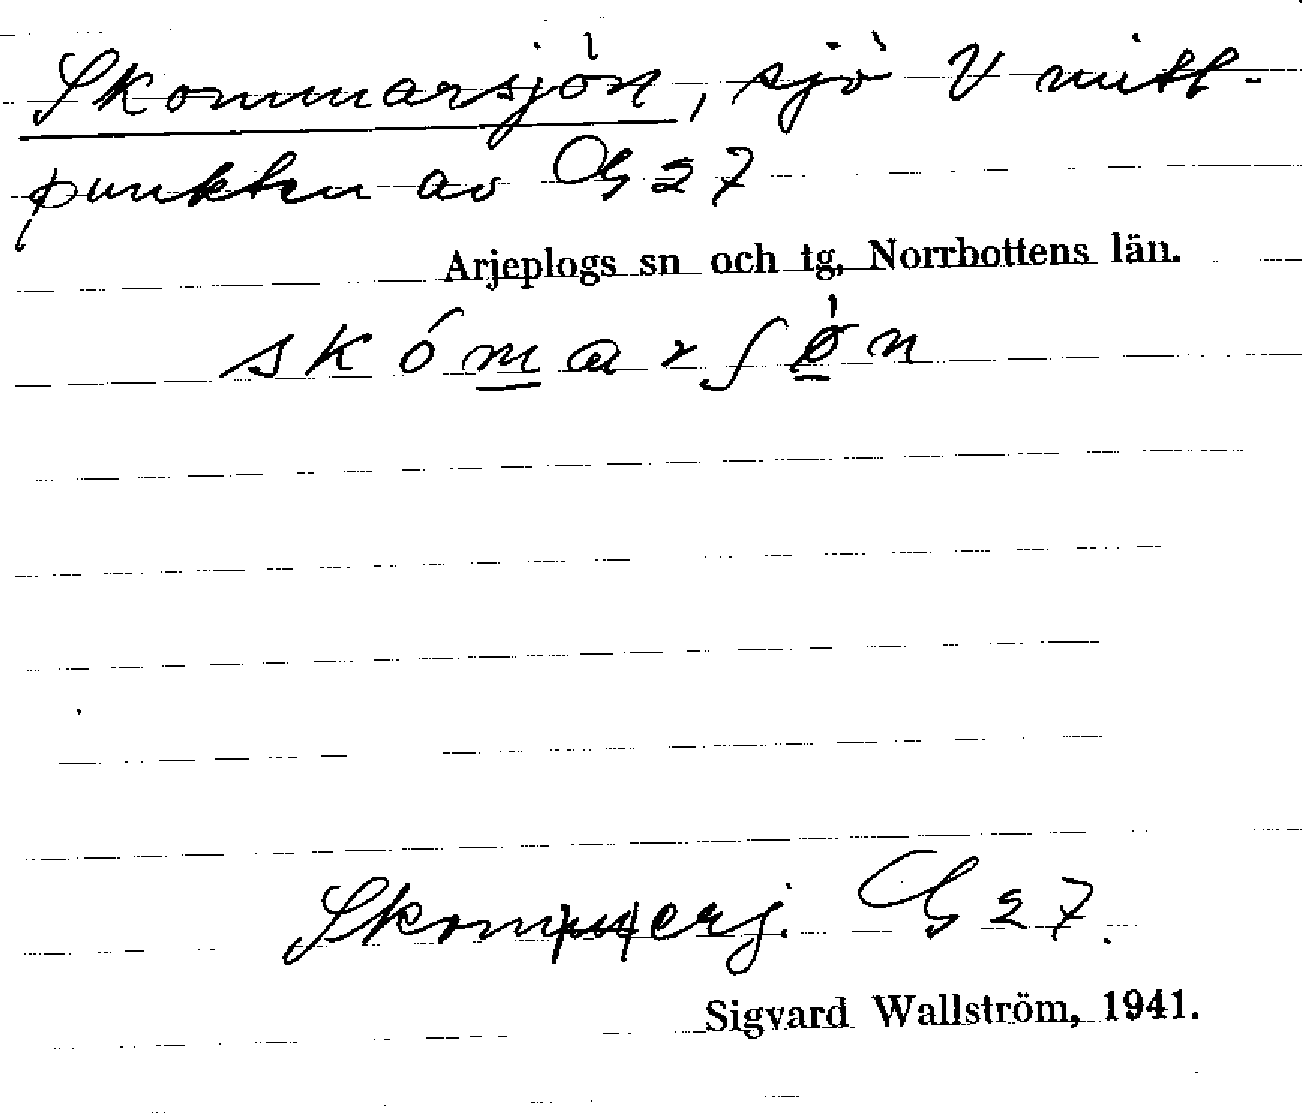 Skommarsjön, sjö V mitt-
punkten av G 27
Arjeplogs sn och tg, Norrbottens län.
skómarʃøn
Skommerj. G 27.
Sigvard Wallström, 1941.